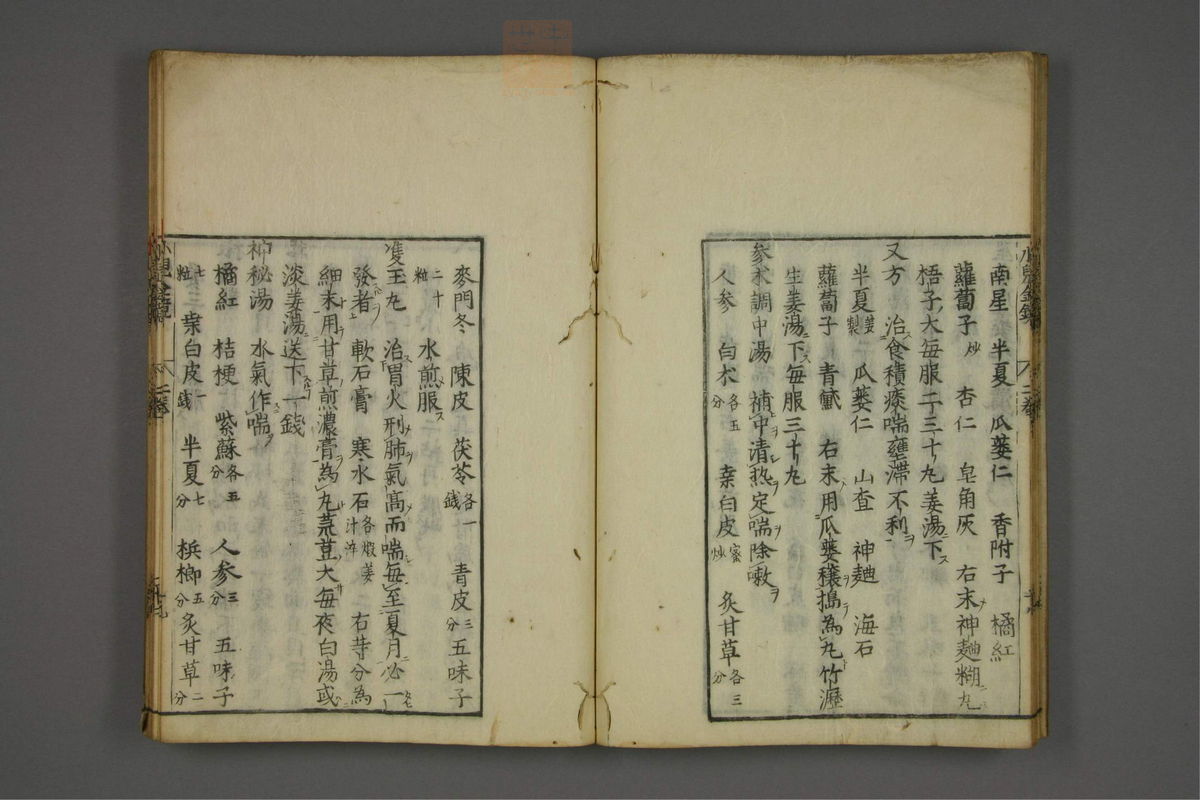 南星 半夏 瓜蔞仁 香附子 橘紅
蘿蔔子炒 杏仁 皂角灰 右末神麯糊丸
梧子大每服二三十丸姜湯下ス
又方 治食積痰喘壅滯不利ヲ
半夏姜製 瓜蔞仁 山査 神麯 海石
蘿蔔子 青黛 右末用瓜蔞穰搗為丸竹瀝
生姜湯下ス每服三十丸
參朮調中湯 補中清熱定喘除嗽ヲ
人參 白朮各五分 桒白皮蜜炒 炙甘草各三分
麥門冬 陳皮 茯苓各一錢 青皮三分 五味子
二十粒 水煎服ス
隻玉丸 治胃火刑肺氣高而喘每至夏月必
發者 軟石膏 寒水石各煅姜汁淬 右等分為
細末用甘草煎濃膏為丸芡荳大每夜白湯或
淡姜湯送下一錢
神秘湯 水氣作喘
橘紅 桔梗 紫蘇各五分 人參三分 五味子
七粒 桒白皮一錢 半夏七分 梹榔五分 炙甘草二分